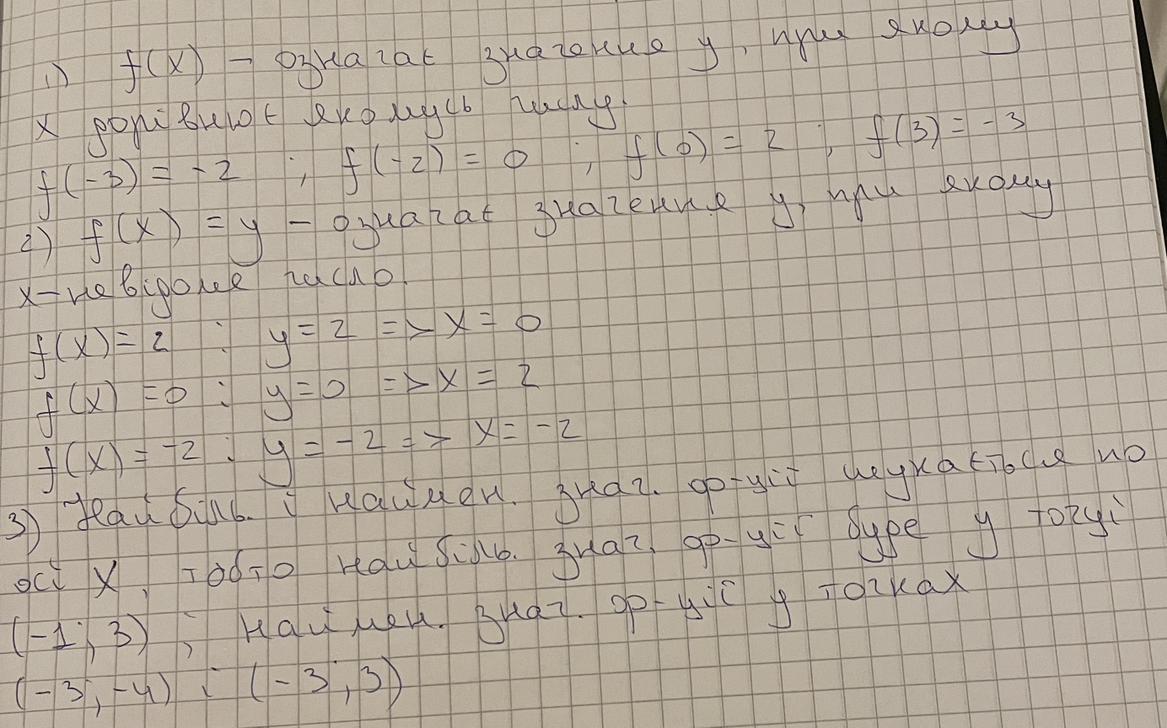 1) f(x) – означає значення y, при якому
x дорівнює якомусь числу.
f(-3) = -2 ; f(-2) = 0 ; f(0) = 2 ; f(3) = -3
2) f(x) = y – означає значення y, при якому
x – невідоме число.
f(x) = 2 ; y = 2 => x = 0
f(x) = 0 ; y = 0 => x = 2
f(x) = -2 ; y = -2 => x = -2
3) Найбіль. і наймен. знач. ф-ції шукається по
осі X, тобто найбіль. знач. ф-ції буде у точці
(-1; 3) ; наймен. знач. ф-ції у точках
(-3; -4) і (-3; 3)